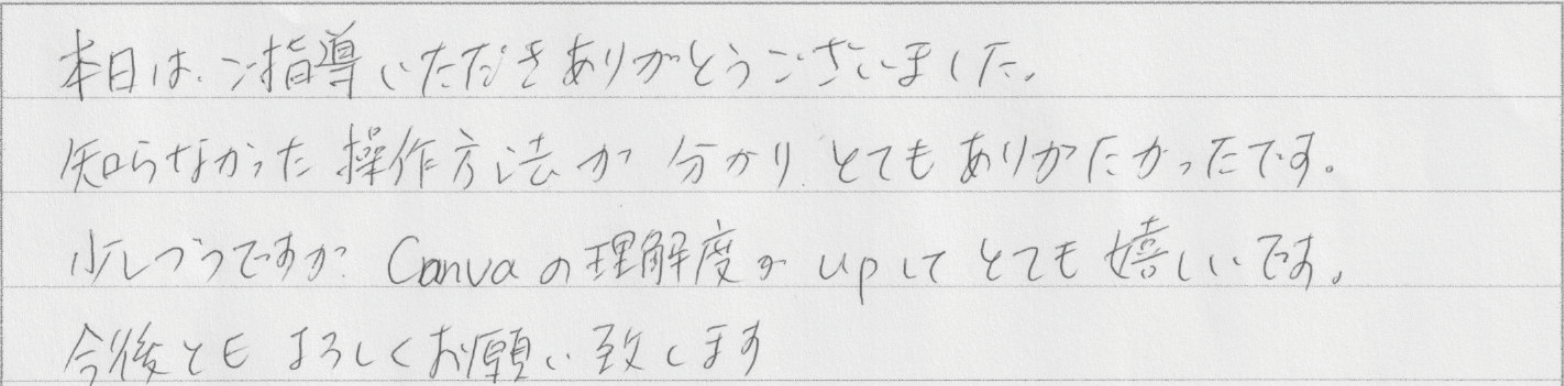 本日は、ご指導いただきありがとうございました。
知らなかった操作方法が分かり、とてもありがたかったです。
少しづつですが、Canvaの理解度がupしてとても嬉しいです。
今後とも よろしくお願い致します